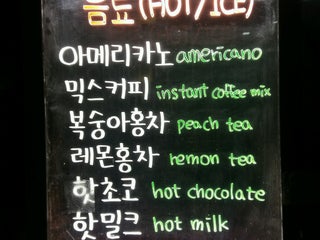 음료 (HOT/ICE)
아메리카노 americano
믹스커피 instant coffee mix
복숭아홍차 peach tea
레몬홍차 remon tea
핫초코 hot chocolate
핫밀크 hot milk